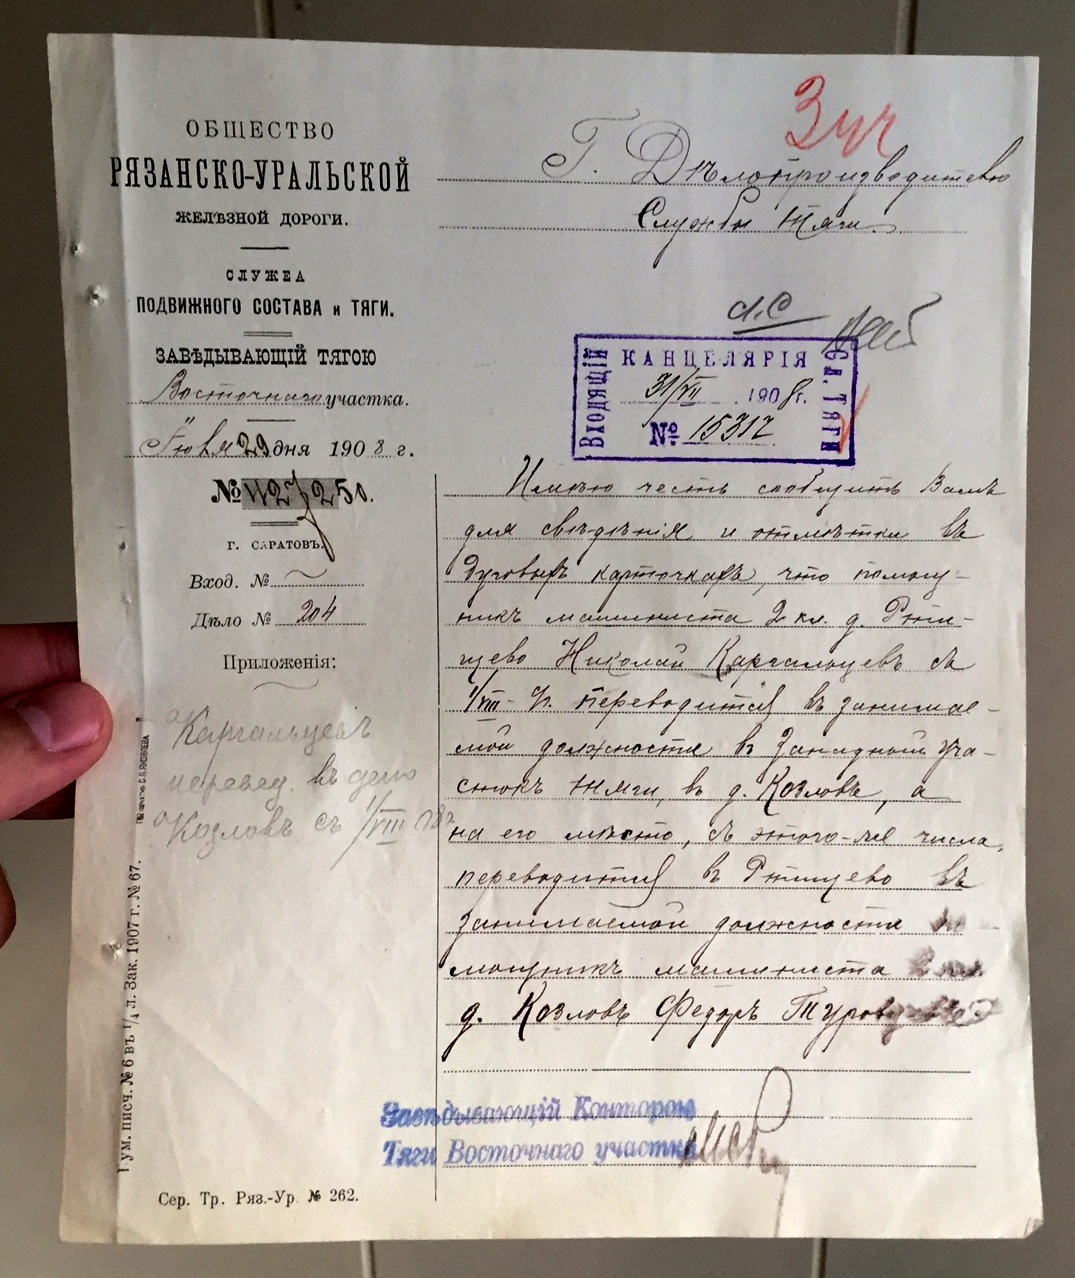 ОБЩЕСТВО
РЯЗАНСКО-УРАЛЬСКОЙ
ЖЕЛѢЗНОЙ ДОРОГИ.
СЛУЖБА
ПОДВИЖНОГО СОСТАВА и ТЯГИ.
ЗАВѢДЫВАЮЩІЙ ТЯГОЮ
Восточнаго участка.
Іюля 29 дня 1908 г.
№ 250.
г. САРАТОВЪ.
Вход. №
Дѣло № 204
Приложенія:
Каргальцевъ
перевед. въ депо
Козловъ съ 1/VIII 08 г.
3 уч
Г. Дѣлопроизводителю
Службы Тяги.
КАНЦЕЛЯРІЯ
ВХОДЯЩІЙ
31/VII 1908 г.
№ 15312
Сл. ТЯГИ
Имѣю честь сообщить Вамъ
для свѣдѣнія и отмѣтки въ
карточкахъ, что помощ-
никъ машиниста 2 кл. д. Рти-
щево Николай Каргальцевъ съ
1/VIII переводится въ занимае-
мой должности въ Западный уча-
стокъ Тяги, въ д. Козловъ, а
на его мѣсто, съ этого-же числа,
переводится въ Ртищево въ
занимаемой должности по-
мощникъ машиниста 2 кл.
д. Козловъ Федоръ
Завѣдывающій Конторою
Тяги Восточнаго участка
Бум. писч. № 6 въ 1/4 л. Зак. 1907 г. № 67.
Сер. Тр. Ряз.-Ур. № 262.